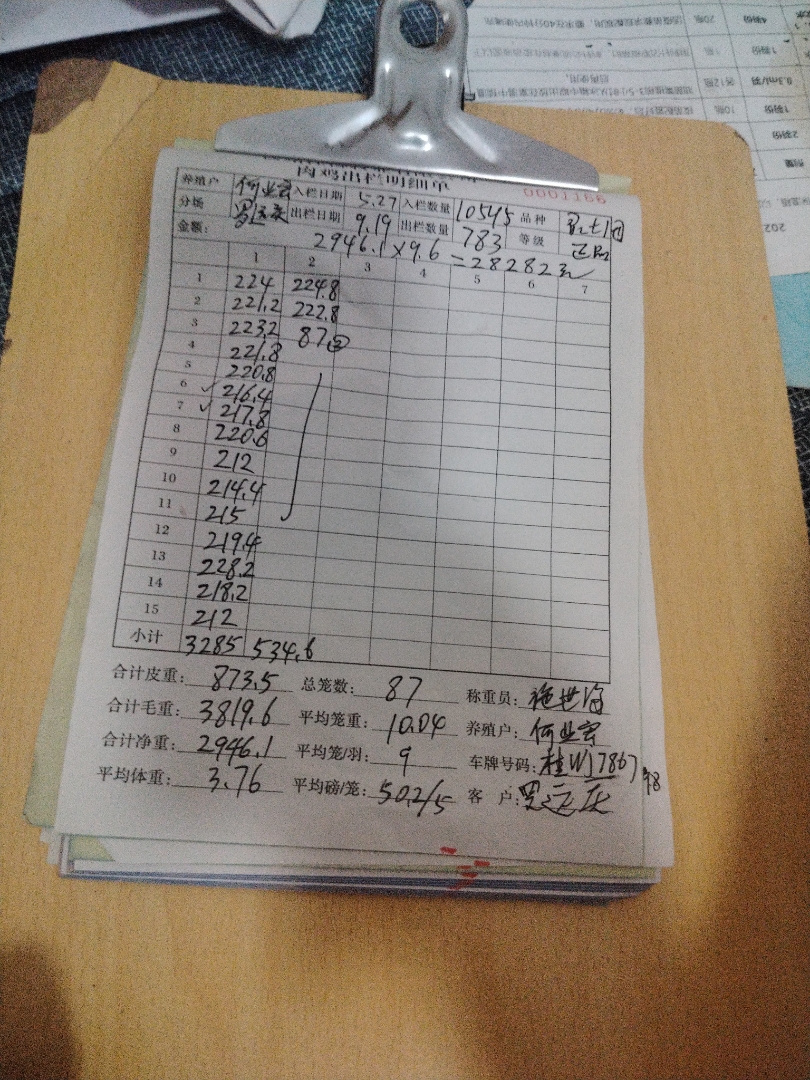 肉鸡出栏明细单
0001166
养殖户 何业宏 入栏日期 5.27 入栏数量 10545 品种
分场 出栏日期 9.19 出栏数量 783 等级 正品
金额: 2946.1×9.6=28282元
1 2 3 4 5 6 7
1 224 224.8
2 221.2 222.8
3 223.2 87
4 221.8
5 220.8
6 216.4
7 217.8
8 220.6
9 212
10 214.4
11 215
12 219.4
13 228.2
14 218.2
15 212
小计 3285 534.6
合计皮重: 873.5 总笼数: 87 称重员: 施世海
合计毛重: 3819.6 平均笼重: 10.04 养殖户: 何业宏
合计净重: 2946.1 平均笼/羽: 9 车牌号码: 桂
平均体重: 3.76 平均磅/笼: 50.2/5 客 户: 罗运庆